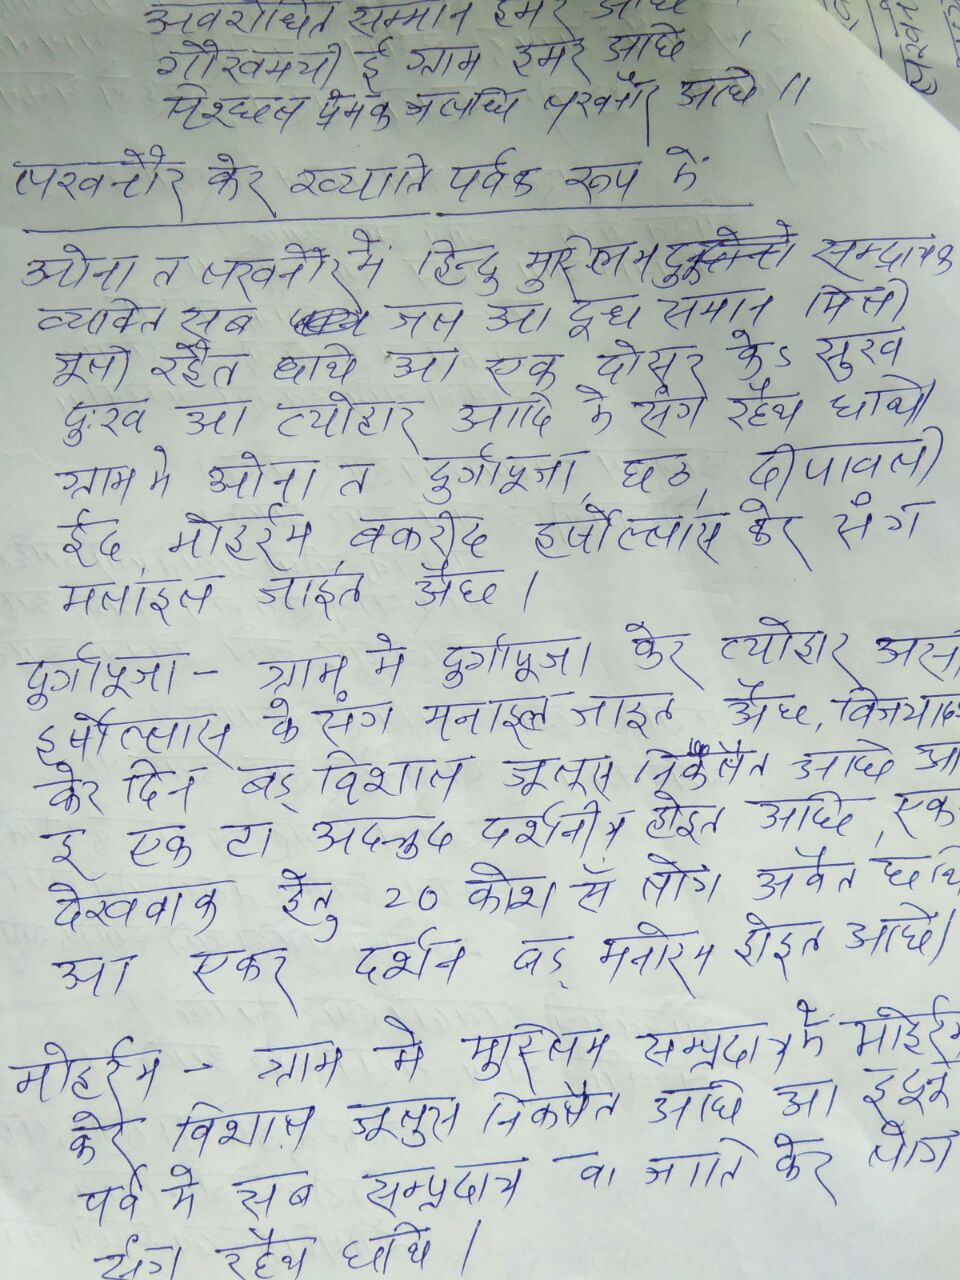 अवशोधित सम्मान हमर अछि
गौरवमयी ई ग्राम हमर अछि ,
निश्छल प्रेमक जलधि लखनौर अछि ॥
लखनौर केर ख्याति पर्वक रूप में
ओना त लखनौर में हिन्दु मुस्लिम सम्प्रदायक
व्यक्ति सब जल आ दूध समान मिली
जूली रहैत छथि आ एक दोसर केऽ सुख
दुःख आ त्योहार आदि मे संग रहैथ छथि।
ग्राम मे ओना त दुर्गापूजा, छठ, दीपावली
ईद, मोहर्रम, बकरीद हर्षोल्लास केर संग
मनाइल जाइत अैछ ।
दुर्गापूजा - ग्राम मे दुर्गापूजा केर त्योहार अति
हर्षोल्लास के संग मनाइल जाइत अैछ, विजयाद
केर दिन बड़ विशाल जूलूस निकलैत अछि आ
इ एक टा अदभुद दर्शनीय होइत अछि, एक
देखबाक हेतु 20 कोश सँ लोग अबैत छथि
आ एकर दर्शन बड़ मनोरम होइत अछि।
मोहर्रम - ग्राम मे मुस्लिम सम्प्रदाय के मोहर्रम
केर विशाल जूलुस निकलैत अछि आ
पर्व मे सब सम्प्रदाय वा जाति केर लोग
संग रहैथ छथि ।